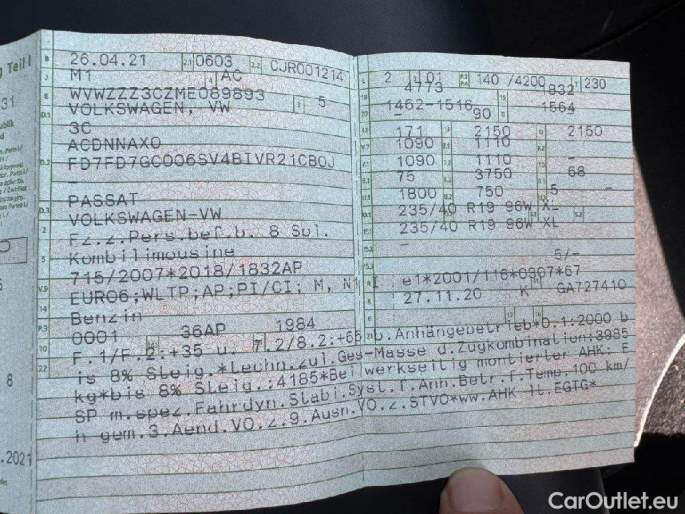 g Teil I
B 26.04.21 2.1 0603 2.2 CJR001214
J M1 4 AC
E WVWZZZ3CZME089893 3 5
D.1 VOLKSWAGEN, VW
3C
ACDNNAX0
D.2 FD7FD7GC006SV4BIVR21CB0J
-
PASSAT
D.3 VOLKSWAGEN-VW
2 Fz.z.Pers.bef.b. 8 Spl.
5 Kombilimousine
715/2007*2018/1832AP
V.9 EURO6;WLTP;AP;PI/CI; M, N1 I
14 Benzin
P.3 0001 36AP 1984
2 01 140 /4200 230
4773 1832
1462-1516 1564
- 90
171 2150 2150
1090 1110
1090 1110 -
75 3750 68
1800 750 5 -
235/40 R19 96W XL
235/40 R19 96W XL
-
5/-
e1*2001/116*0307*67
27.11.20 K GA727410
22 F.1/F.2:+35 u. 7.2/8.2:+65 b.Anhängebetrieb*O.1:2000 b
is 8% Steig.*techn.zul.Ges-Masse d.Zugkombination:3985
kg*bis 8% Steig.:4185*Bei werkseitig montierter AHK: E
SP m.spez.Fahrdyn.Stabi.Syst.f.Anh.Betr.f.Temp.100 km/
h gem.3.Aend.VO.z.9.Ausn.VO.z.STVO*ww.AHK lt.EGTG*
31
8
.2021
CarOutlet.eu